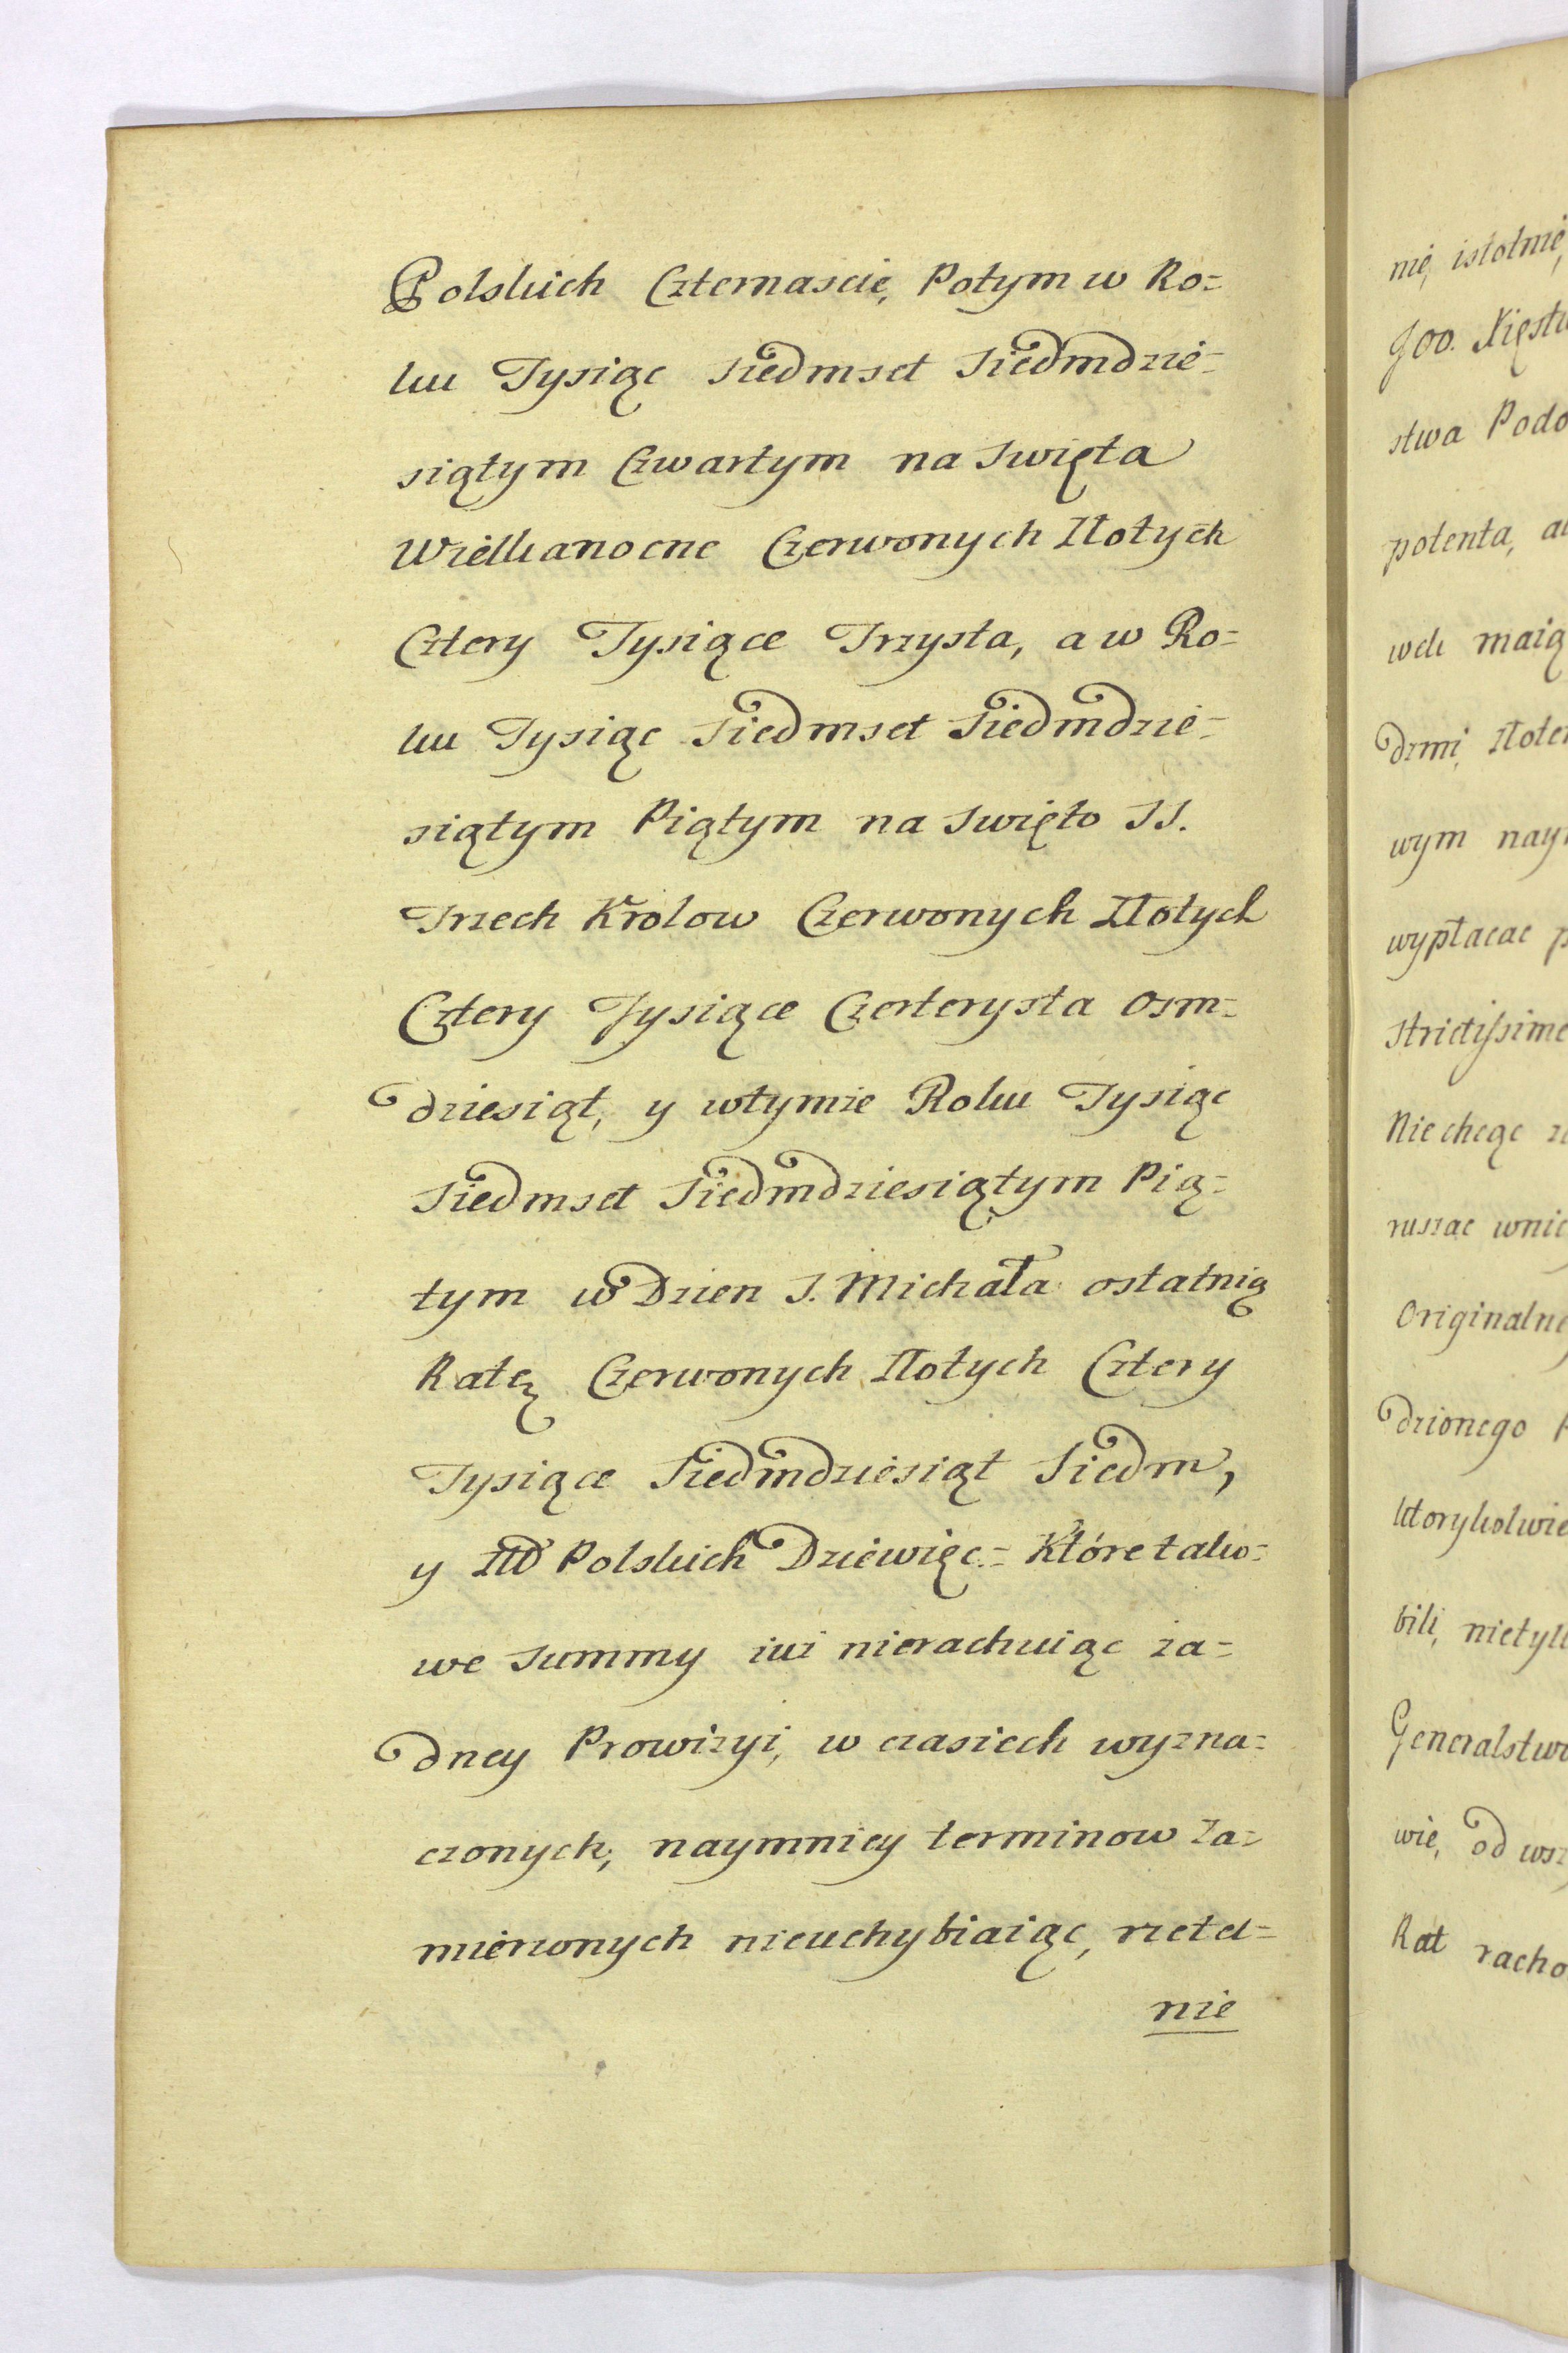 Polskich Czternascie, Potym w Ro=
ku Tysiąc Siedmset Siedmdzie=
siątym Czwartym na Swięta
Wielkanocne Czerwonych Złotych
Cztery Tysiące Trzysta, a w Ro=
ku Tysiąc Siedmset Siedmdzie=
siątym Piątym na Swięto SS.
Trzech Krolow Czerwonych Złotych
Cztery Tysiące Czerterysta Osm=
dziesiąt, y wtymze Roku Tysiąc
Siedmset Siedmdziesiątym Pią=
tym w Dzien S. Michała ostatnią
Ratę Czerwonych Złotych Cztery
Tysiące Siedmdziesiąt Siedm,
y Złł Polskich Dziewięc.= Które tako=
we Summy iuz nierachuiąc za=
dney Prowizyi, w czasiech wyzna=
czonych, naymniey terminow Za=
mierzonych nieuchybiaiąc, rzetel=
nie
nię, istotnię,
JOO. Xięstw
stwa Podo
potenta, al
wek maią
dzmi, złote
wym nay
wypłacac p
strictissime
Nie chcąc z
ruszac wnic
Originalne
dzionego P
ktorykolwie
bili, nietylk
Generalstwo
wie, od wsz
Rat racho